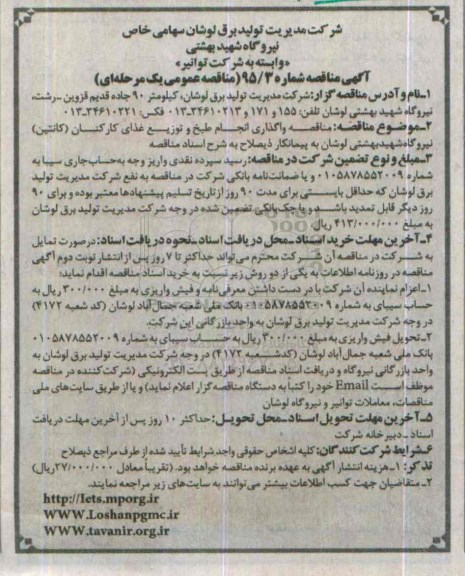 شرکت مدیریت تولید برق لوشان سهامی خاص
نیروگاه شهید بهشتی
«وابسته به شرکت توانیر»
آگهی مناقصه شماره ۹۵/۳ (مناقصه عمومی یک مرحله‌ای)
۱-نام و آدرس مناقصه گزار: شرکت مدیریت تولید برق لوشان، کیلومتر ۹۰ جاده قدیم قزوین -رشت،
نیروگاه شهید بهشتی لوشان تلفن: ۱۵۵ و ۱۷۱ و ۳۴۶۱۰۲۱۳-۰۱۳ فکس: ۳۴۶۱۰۲۲۱-۰۱۳
۲-موضوع مناقصه: مناقصه واگذاری انجام طبخ و توزیع غذای کارکنان (کانتین)
نیروگاه شهید بهشتی لوشان به پیمانکار ذیصلاح به شرح اسناد مناقصه
۳-مبلغ و نوع تضمین شرکت در مناقصه: رسید سپرده نقدی واریز وجه به حساب جاری سیبا به
شماره ۰۱۰۵۸۷۸۵۵۲۰۰۹ و یا ضمانت‌نامه بانکی شرکت در مناقصه به نفع شرکت مدیریت تولید
برق لوشان که حداقل بایستی برای مدت ۹۰ روز از تاریخ تسلیم پیشنهادها معتبر بوده و برای ۹۰
روز دیگر قابل تمدید باشد و یا چک بانکی تضمین شده در وجه شرکت مدیریت تولید برق لوشان
به مبلغ ۴۱۳/۰۰۰/۰۰۰ ریال
۴-آخرین مهلت خرید اسناد-محل دریافت اسناد-نحوه دریافت اسناد: درصورت تمایل
به شرکت در مناقصه آن شرکت محترم می‌تواند حداکثر تا ۷ روز پس از انتشار نوبت دوم آگهی
مناقصه در روزنامه اطلاعات به یکی از دو روش زیر نسبت به خرید اسناد مناقصه اقدام نماید:
۱-اعزام نماینده آن شرکت با در دست داشتن معرفی‌نامه و فیش واریزی به مبلغ ۳۰۰/۰۰۰ ریال به
حساب سیبای به شماره ۰۱۰۵۸۷۸۵۵۲۰۰۹ بانک ملی شعبه جمال آباد لوشان (کد شعبه ۴۱۷۲)
در وجه شرکت مدیریت تولید برق لوشان به واحد بازرگانی این شرکت.
۲-تحویل فیش واریزی به مبلغ ۳۰۰/۰۰۰ ریال به حساب سیبای به شماره ۰۱۰۵۸۷۸۵۵۲۰۰۹
بانک ملی شعبه جمال آباد لوشان (کدشعبه ۴۱۷۲) در وجه شرکت مدیریت تولید برق لوشان به
واحد بازرگانی نیروگاه و دریافت اسناد مناقصه از طریق پست الکترونیکی (شرکت کننده در مناقصه
موظف است Email خود را کتباً به دستگاه مناقصه گزار اعلام نماید) و یا از طریق سایت‌های ملی
مناقصات، معاملات توانیر و نیروگاه لوشان
۵-آخرین مهلت تحویل اسناد-محل تحویل: حداکثر ۱۰ روز پس از آخرین مهلت دریافت
اسناد - دبیرخانه شرکت
۶-شرایط شرکت کنندگان: کلیه اشخاص حقوقی واجد شرایط تأیید شده از طرف مراجع ذیصلاح
تذکر: ۱-هزینه انتشار آگهی به عهده برنده مناقصه خواهد بود. (تقریباً معادل ۲۷/۰۰۰/۰۰۰ ریال)
۲-متقاضیان جهت کسب اطلاعات بیشتر می‌توانند به سایت‌های زیر مراجعه نمایند.
http://Iets.mporg.ir
WWW.Loshanpgmc.ir
WWW.tavanir.org.ir